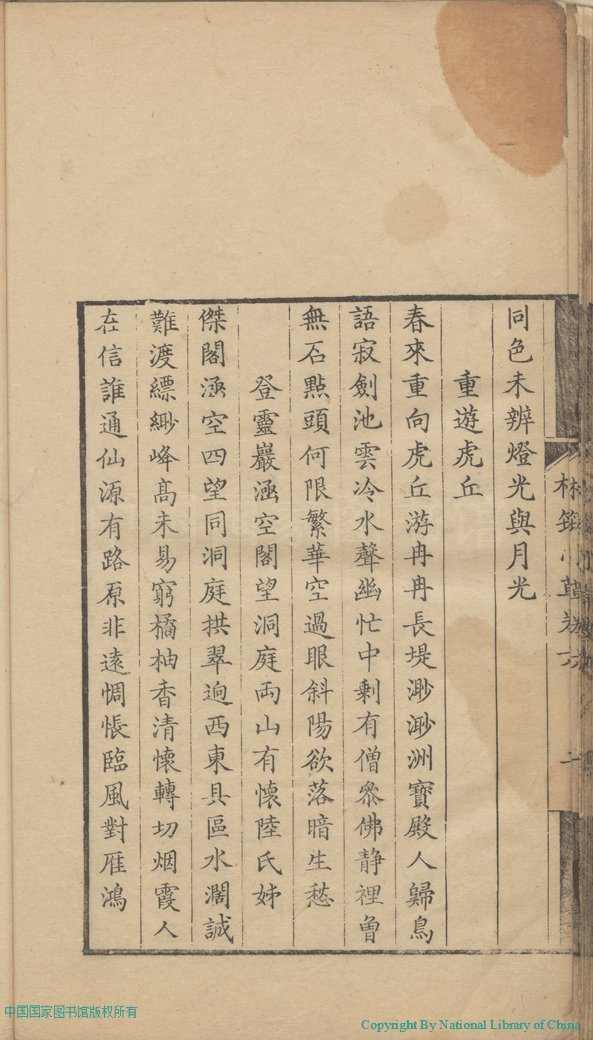 同色未辨燈光與月光
重遊虎丘
春來重向虎丘游冉冉長堤渺渺洲寶殿人歸鳥
語寂劍池雲冷水聲幽忙中剩有僧叅佛静裡曾
無石點頭何限繁華空過眼斜陽欲落暗生愁
登靈巖涵空閣望洞庭両山有懷陸氏姊
傑閣涵空四望同洞庭拱翠逈西東具區水濶誠
難渡縹緲峰髙未易窮橘柚香清懷轉切烟霞人
在信誰通仙源有路原非遠惆悵臨風對雁鴻
中国国家图书馆版权所有
Copyright By National Library of China